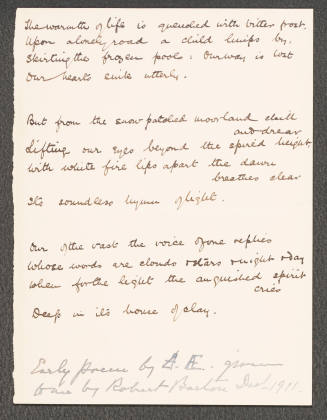 The warmth of life is quenched with bitter frost.
Upon a lonely road a child limps by.
Skirting the frozen pools: Our way is lost
Our hearts sink utterly.
But from the snow-patched moorland chill
and drear
Lifting our eyes beyond the spired height
With white fire lips apart the dawn
breathes clear
Its soundless hymn of light.
Out of the vast the voice of one replies
Whose words are clouds & stars & night & day
When for the light the anguished spirit
cries
Deep in its house of clay.
Early Poem by A.E. given
to me by Robert Barton Dec 1911.